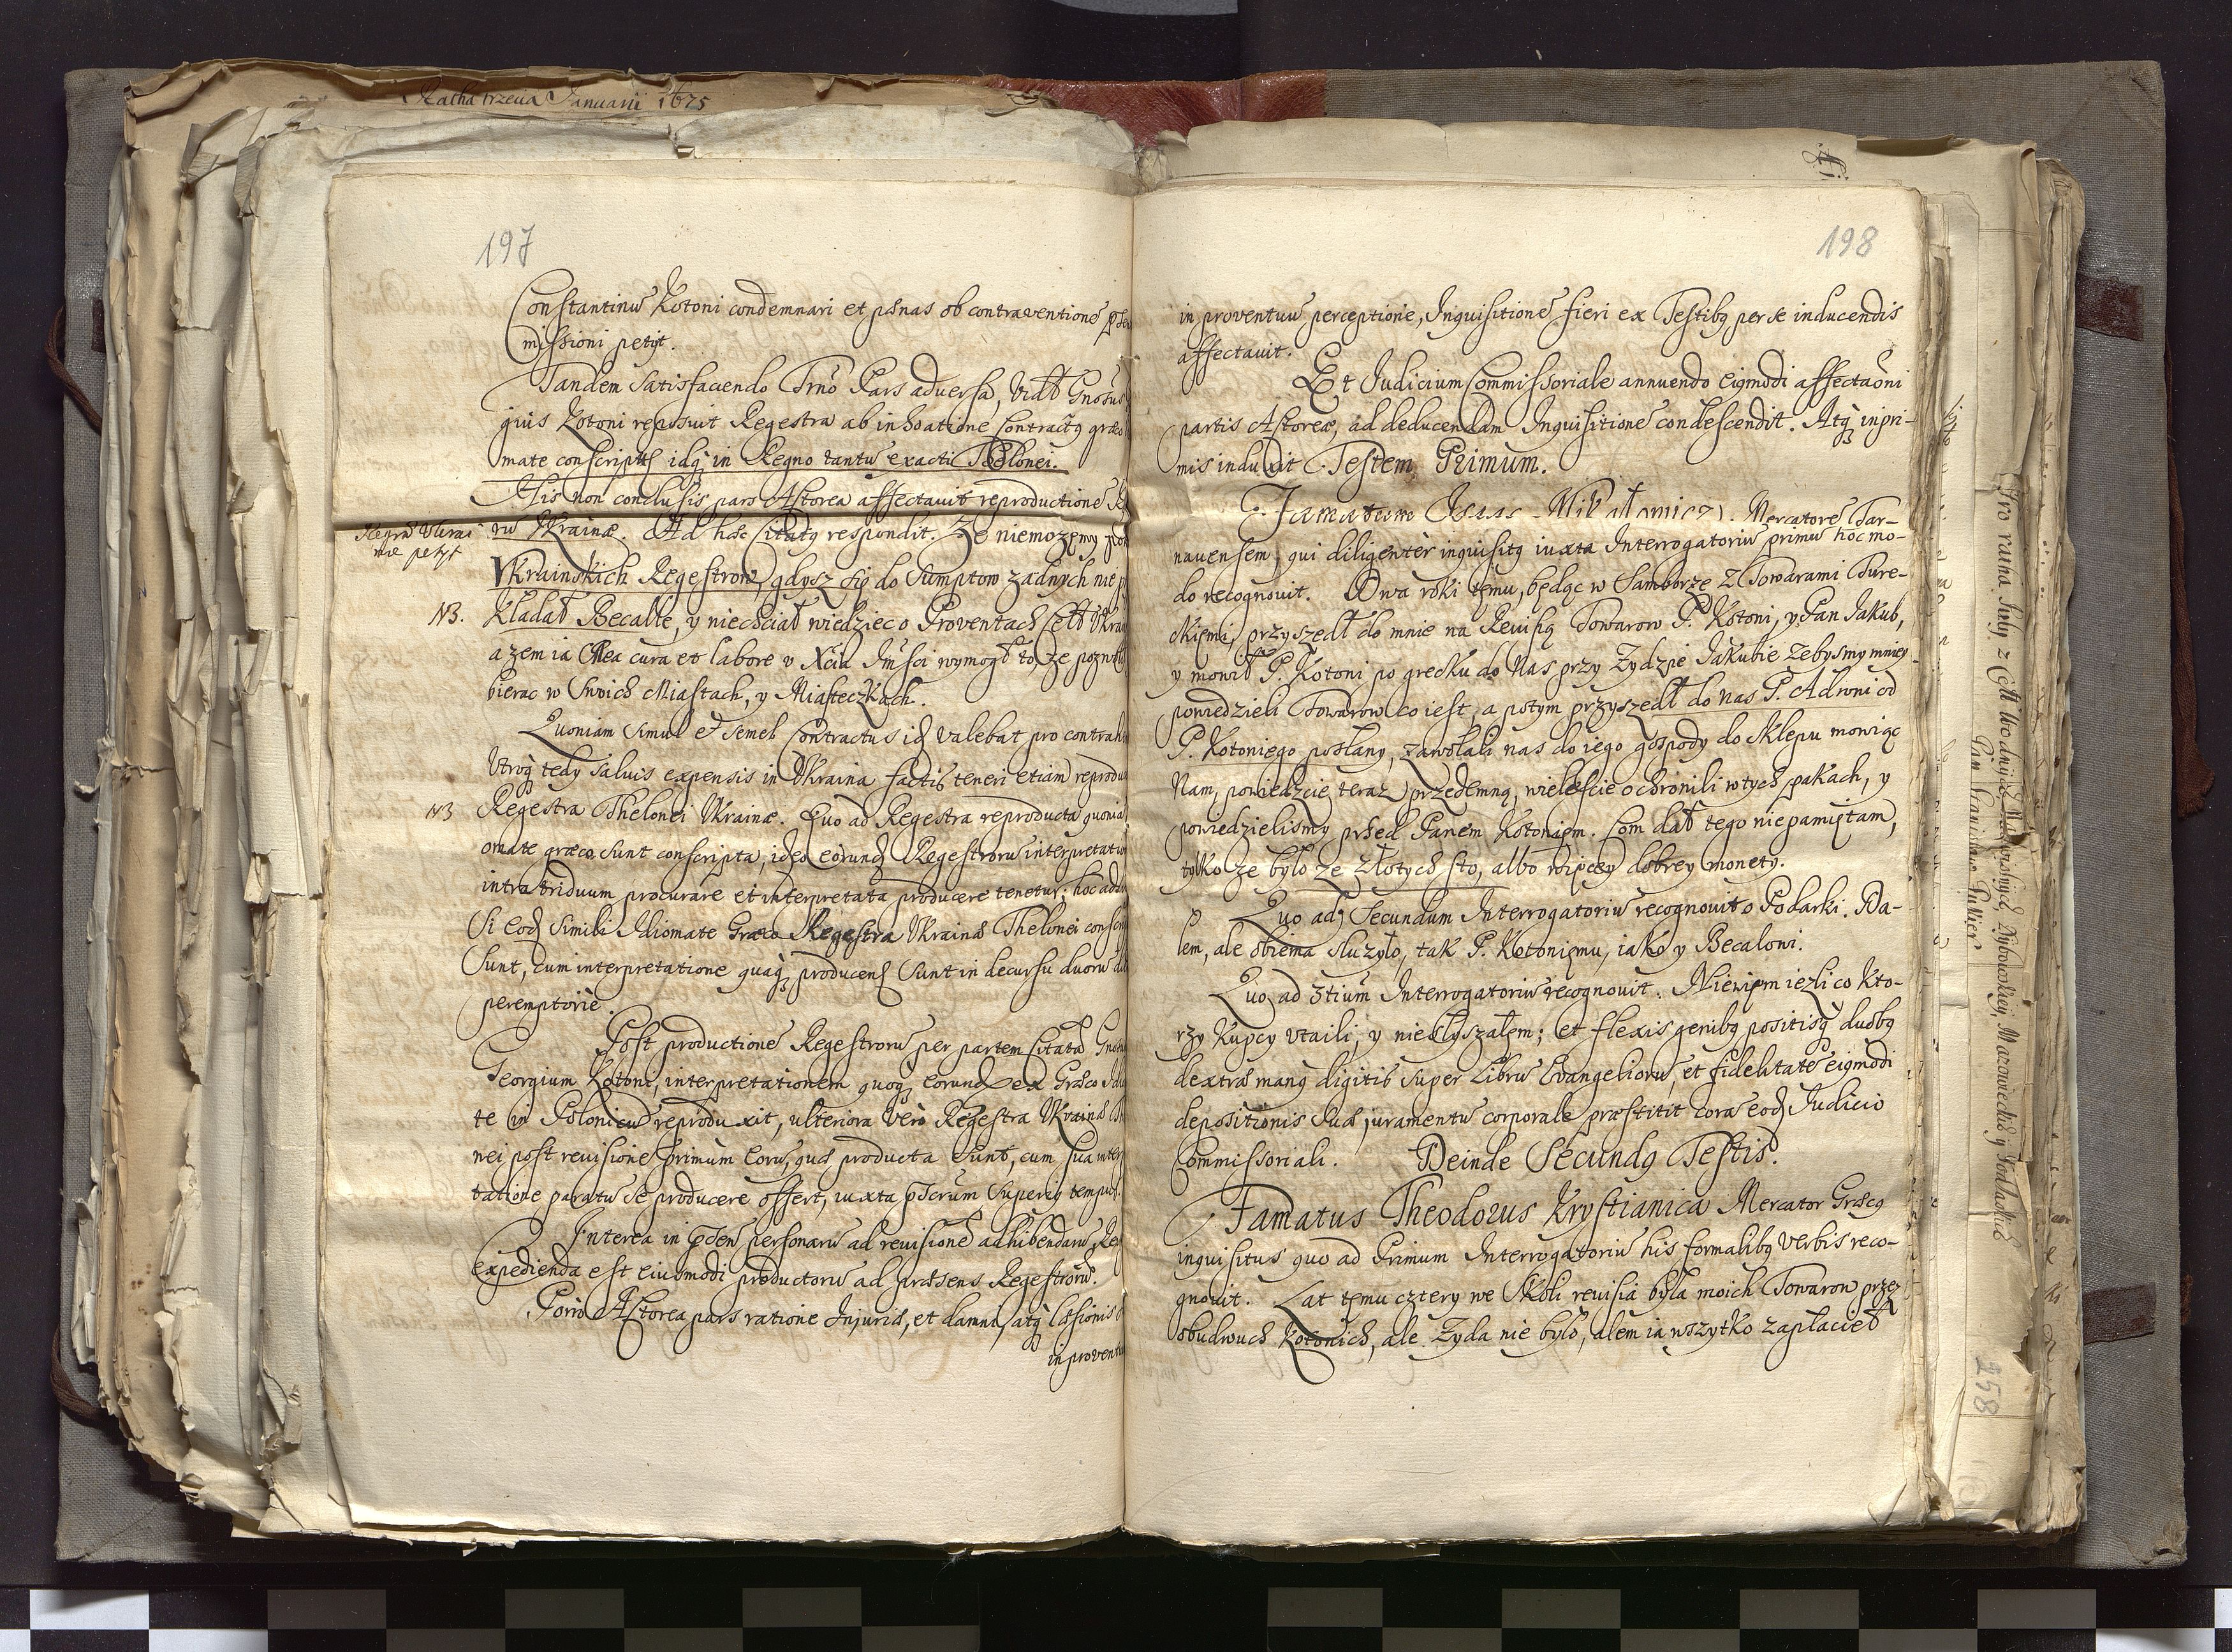 Ratha trzecia Januarii 1675
197
Constantinū Kotoni condemnari et pænas ob contraventionē
missioni petijt.
Tandem Satisfaciendo Trnō Pars adversa, vidt Gnōsus
gius Kotoni reposuit Regestra ab inhoatione Contractꝯ græco
mate conscripta idqꝫ in Regno tantū exacti Thelonei.
His non conclusis pars Actorea affectavit reproductionē
Regrā Ukrai
næ petyt
rū Ukrainæ. Ad hæc Citatꝯ respondit. Ze niemozęmy
Vkrainskich Regestrow, gdysz się do Sumptow zadnych nie
NB. Kładał Becalle, y niechciał wiedziec o Proventach Cełł Ukra
a zem ia Mea cura et labore v Xcia Jmści wymogł to, ze pozwolił
bierac w Swoich Miastach, y Miasteczkach.
Quoniam Simul et Semel Contractus id valebat pro contrah
Utrqꝫ tedy salvis expensis in Ukraina factis teneri etiam reprodu
NB Regestra Thelonei Ukrainæ. Quo ad Regestra reproducta quoniā
omate græco sunt conscripta, ideo eorund Regestrorū interpretatio
intra triduum procurare et interpretata producere tenetur; hoc
Si eod Simili Idiomate Græco Regestra Ukrainæ Thelonei conscri
Sunt, cum interpretatione quaqꝫ producend Sunt in decursu duorū
peremptorie.
Post productionē Regestrorū per partem Citatā
Georgium Kotoni, interpretationem quoqꝫ eorund ex Græco
te in Polonicū reproduxit, ulteriora verò Regestra Ukrainæ
nei post revisionē primùm eorū, quæ producta sunt, cum sua inter
tatione paratū se producere offert, iuxta pscrum Superiꝯ tempus.
Interea in personarū ad revisionē adhibendarū
expedienda est eiusmodi productorū ad præsens Regestrorū.
Porrò Actorea pars ratione Injuriæ, et damni, atqꝫ læsionis
in proventu
198
in proventuū perceptione, Inquisitionē fieri ex Testibꝯ per se inducendis
affectavit.
Et Judicium Commissoriale annuendo eigmodi affectaōni
partis Actoreæ, ad deducendam Inquisitionē condescendit. Atqꝫ inpri-
mis induxit Testem Primum.
Famatum Isaac Mercatorē Tar-
navensem, qui diligentèr inquisitꝯ iuxta Interrogatoriū primū hoc mo-
do recognovit. Dwa roki tęmu, będąc w Samborze z Towarami Ture-
ckiemi, przyszedł do mnie na Rewisią Towarow P. Kotoni, y Pan Jakub,
y mowił P. Kotoni po grecku do Nas przy Zydzie Jakubie zebysmy mniey
powiedzieli Towarow co iest, a potym przyszedł do nas P. Adwni od
P. Kotoniego posłany, zawołali nas do iego gospody do Sklepu mowiąc
Nam, powiedzcie teraz przedemną, wieleście ochronili w tych pakach, y
powiedzielismy przed Panem Kotoniem. Com dał tego niepamiętam,
tylko ze było ze złotych sto, albo więcey dobrey monety.
Quo ad Secundum Interrogatoriū recognovit o Podarki. Da-
lem, ale obiema służyło, tak P. Kotoniemu, iako y Becaloni.
Quo ad 3tium Interrogatoriū recognovit. Niewiem iezli co kto-
rzy Kupcy vtaili, y niesłyszałem; et flexis genibꝯ positisqꝫ duobꝯ
dextræ manꝯ digitis super Librū Evangeliorū, et fidelitatē eigmodi
depositionis suæ, juramentū corporale præstitit corā eod Judicio
Commissoriali. Deinde Secundꝯ Testis.
Famatus Theodorus Krystianica Mercator Græcꝯ
inquisitus quo ad Primum Interrogatoriū his formalibꝯ verbis reco-
gnovit. Lat tęmu cztery we Skoli rewisia była moich Towarow przez
obudwuch Kotonich, ale Zyda nie było, alem ia wszytko zapłacieł
Pro ratha July z Cełł Wodnych Nadwislnych, Dybowskiey, Mazowieckiey y Podlaskich
258